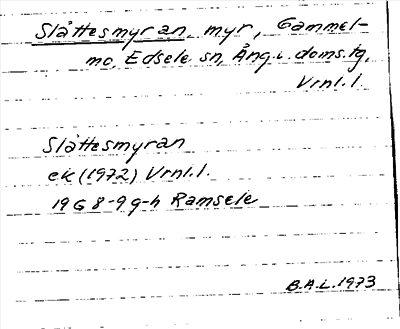 Slåttesmyran, myr, Gammel-
mo, Edsele sn, Ång.v. doms.tg,
Vrnl.l.
Slåttesmyran
ek (1972) Vrnl.l.
19 G 8-9 g-h Ramsele
B.A.L. 1973